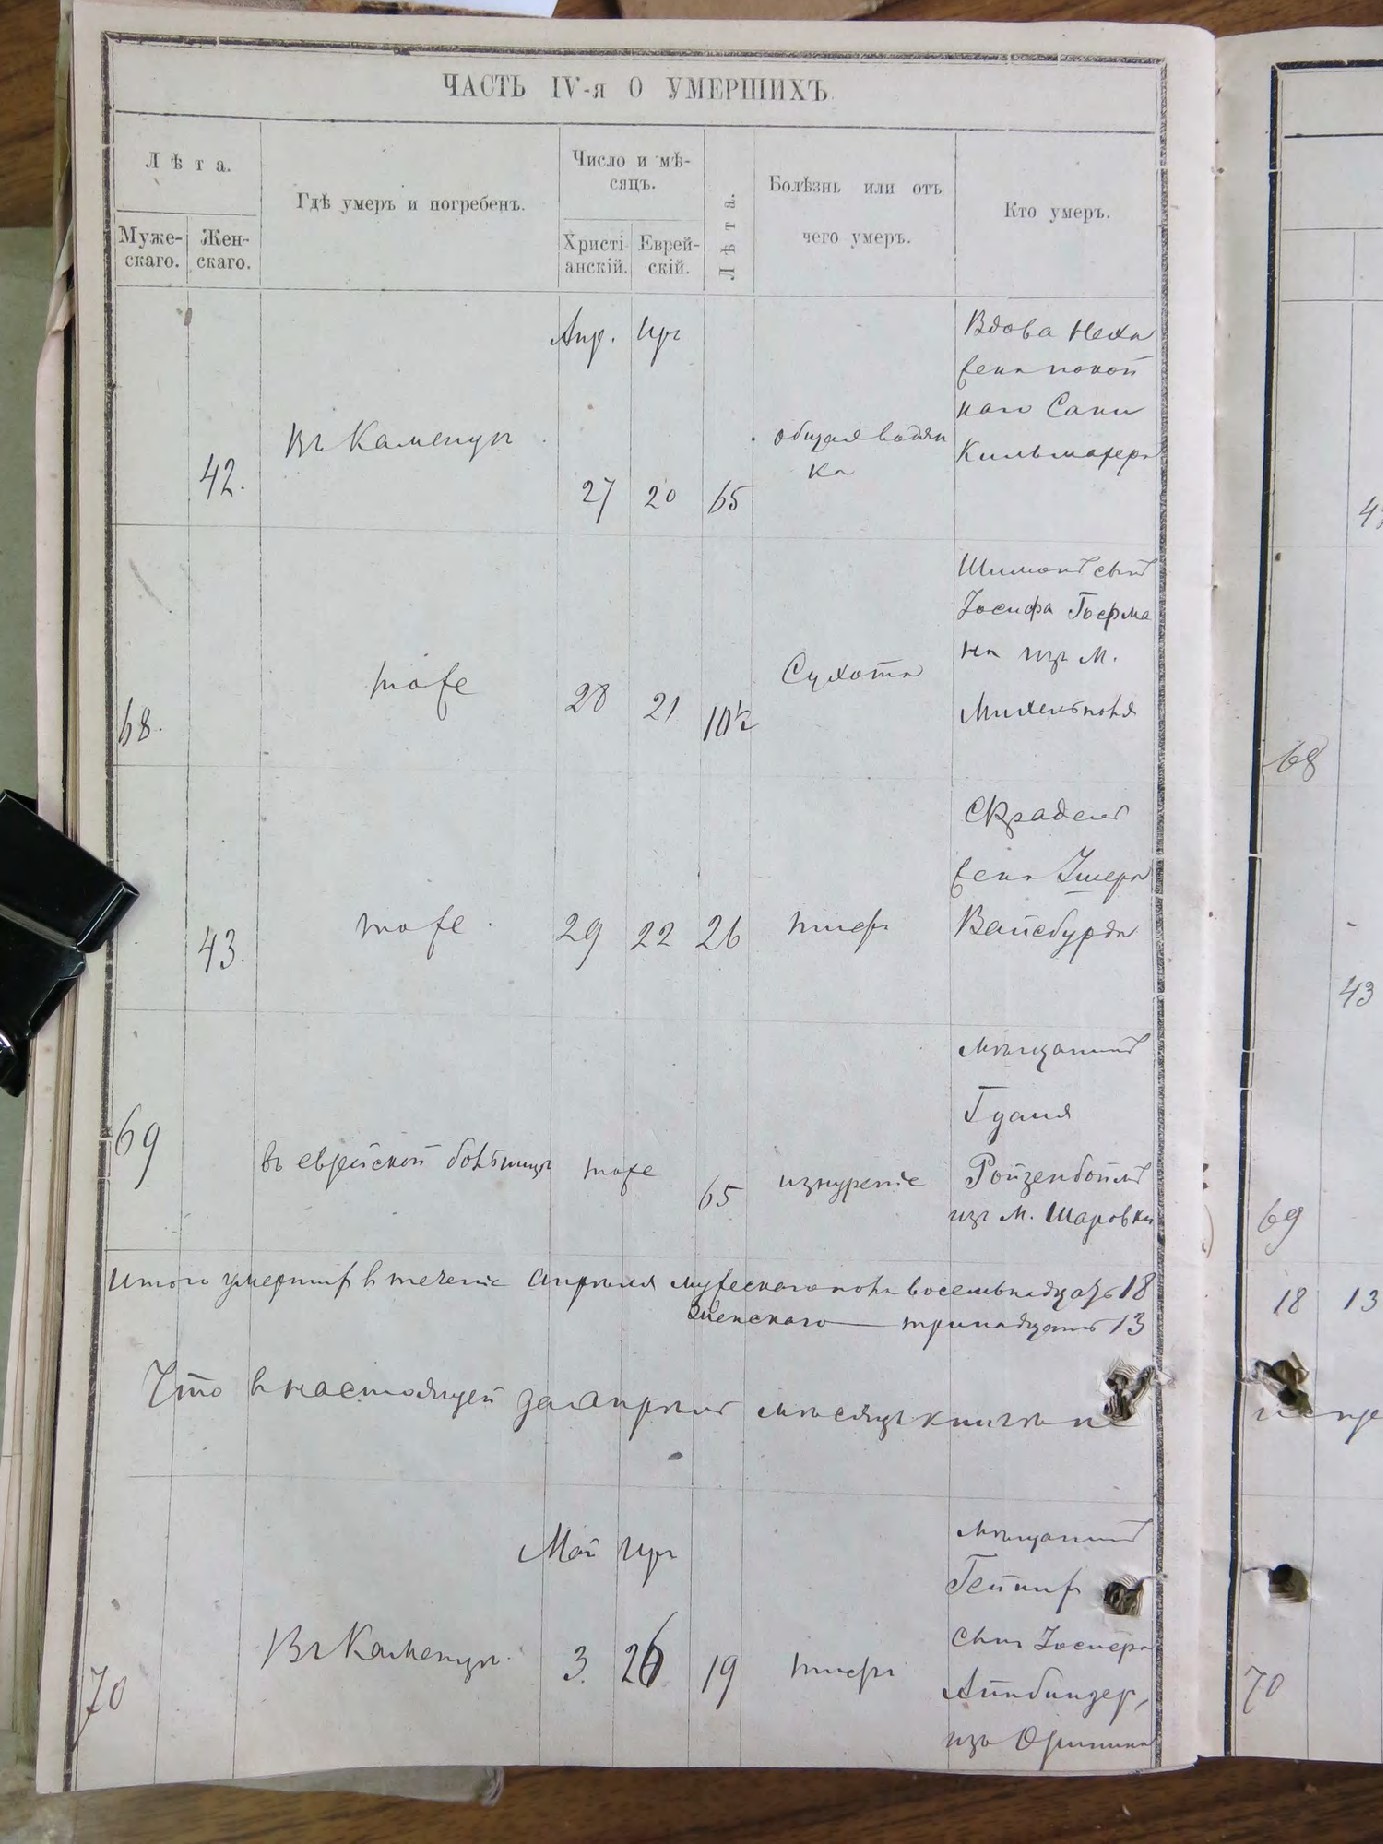 ЧАСТЬ IV-я О УМЕРШИХЪ
Лѣта.
Муже-
скаго.
Жен-
скаго.
Гдѣ умеръ и погребенъ.
Число и мѣ-
сяцъ.
Христі-
анскій.
Еврей-
скій.
Лѣта.
Болѣзнь или отъ
чего умеръ.
Кто умеръ.
42.
Въ Каменцѣ
Апр. Иръ
27 20 65
общая водян
ка
Вдова Неха
жена покой
наго
68.
тоже
28 21 10½
Сухота
Шимонъ сынъ
Іосифа Герма
на изъ м.
43
тоже
29 22 26
тифъ
жена
Вайсбурда
69
въ еврейской больницѣ тоже
65
изнуреніе
мѣщанинъ
Ройзенбоймъ
изъ м. Шаровки
Итого умершихъ въ теченіе апрѣля мужескаго пола восемнадцать 18
Женскаго тринадцать 13
Что в настоящей за апрѣль мѣсяцъ книгѣ
70
Въ Каменцѣ.
Май Иръ
3. 26 19
тифъ
мѣщанинъ
сынъ
Айнбиндер,
изъ
68
43
69
18 13
70